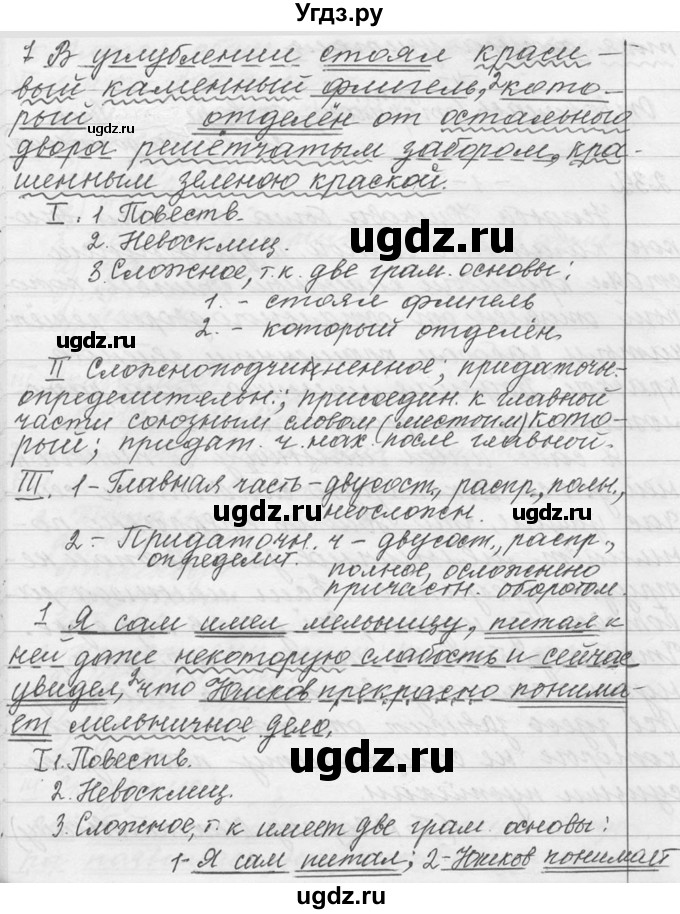 Угдз.ру
1 В углублении стоял краси-
вый каменный флигель, 2 кото-
рый отделён от остального
двора решётчатым забором, кра-
шенным зеленою краской.
I. 1. Повеств.
2. Невосклиц.
3. Сложное, т.к. две грам. основы:
1. - стоял флигель
2. - который отделён
II Сложноподчиненное; придаточн-
определительн.; присоедин. к главной
части союзным словом (местоим) кото-
рый; придат. ч. нах. после главной.
III. 1 - Главная часть - двусост., распр., полн.,
неосложн.
2 - Придаточн. ч - двусост., распр.,
определит.
полное, осложнено
причастн. оборотом.
1 Я сам имел мельницу, питал к
ней даже некоторую слабость и сейчас
увидел, 2 что Юшков прекрасно понима-
ет мельничное дело.
I 1. Повеств.
2. Невосклиц.
3. Сложное, т.к имеет две грам. основы:
1 - Я сам питал; 2 - Юшков понимает
ugdz.ru
ugdz.ru
ugdz.ru
ugdz.ru
ugdz.ru
ugdz.ru
ugdz.ru
ugdz.ru
ugdz.ru
ugdz.ru
ugdz.ru
ugdz.ru